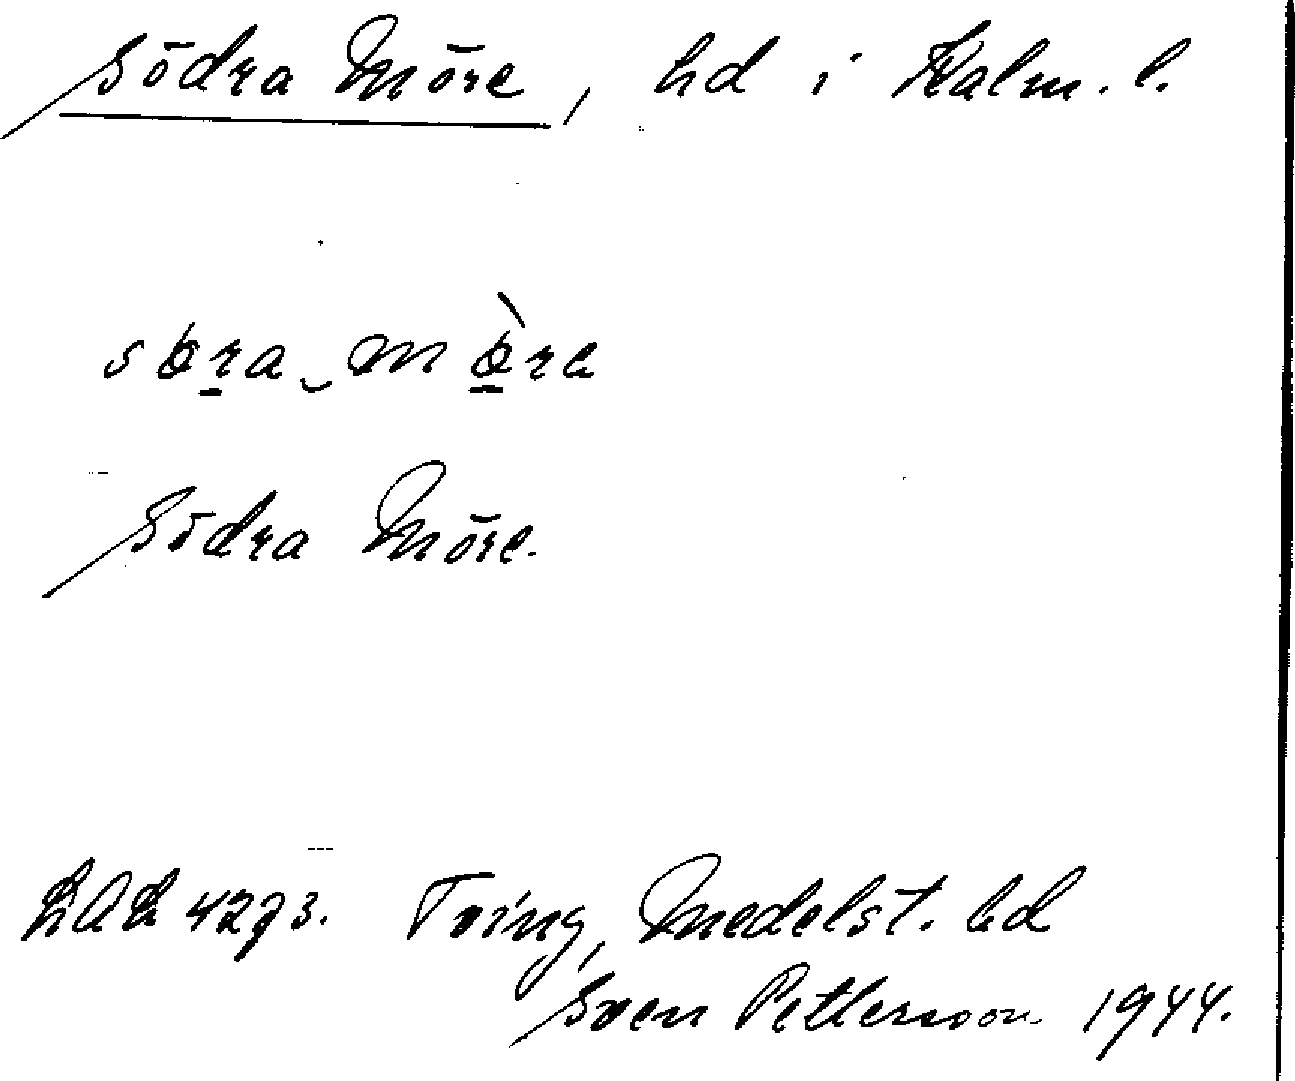 Södra Möre, hd i Kalm. l.
søra‿mø̀re
Södra Möre.
LAL 4273. Tving, Medelst. hd
Sven Pettersson 1944.